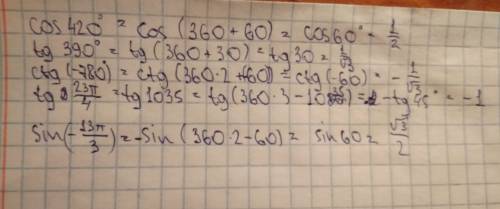 cos 420° = cos (360 + 60) = cos 60° = 1/2
tg 390° = tg (360 + 30) = tg 30 = 1/√3
ctg (-780) = ctg (360·2 + 60) = ctg (-60) = - 1/√3
tg 23π/4 = tg 1035 = tg (360·3 - ) = - tg 45° = -1
sin(-13π/3) = -sin (360·2 - 60) = sin 60 = √3/2